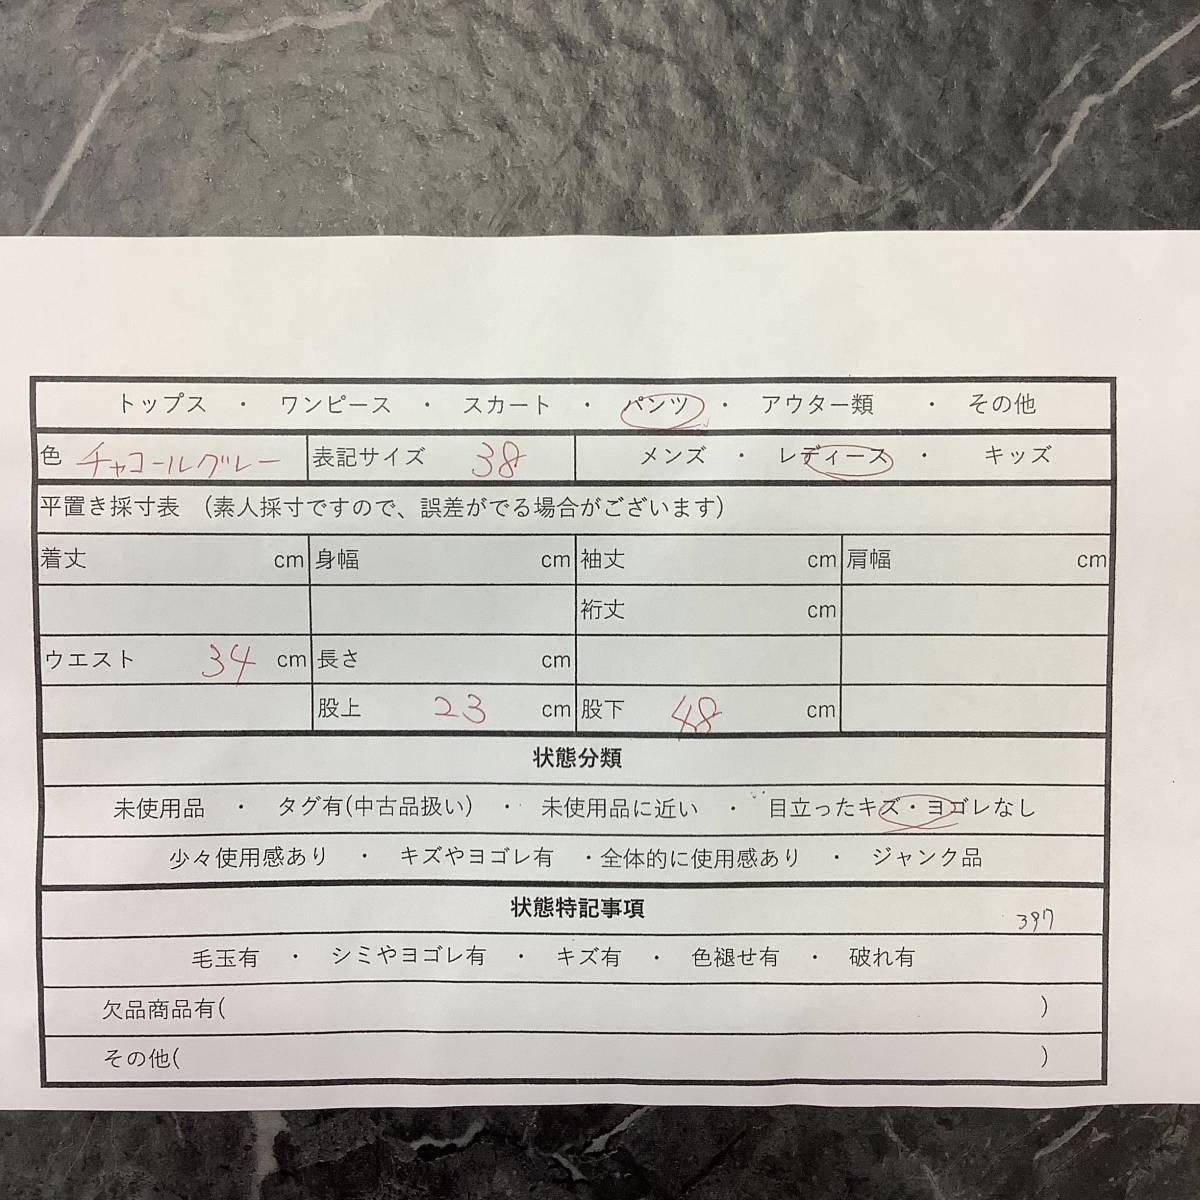 トップス ・ ワンピース ・ スカート ・ パンツ ・ アウター類 ・ その他
色 チャコールグレー 表記サイズ 38 メンズ ・ レディース ・ キッズ
平置き採寸表 (素人採寸ですので、誤差がでる場合がございます)
着丈 cm 身幅 cm 袖丈 cm 肩幅 cm
裄丈 cm
ウエスト 34 cm 長さ cm
股上 23 cm 股下 48 cm
状態分類
未使用品 ・ タグ有(中古品扱い) ・ 未使用品に近い ・ 目立ったキズ・ヨゴレなし
少々使用感あり ・ キズやヨゴレ有 ・全体的に使用感あり ・ ジャンク品
状態特記事項 397
毛玉有 ・ シミやヨゴレ有 ・ キズ有 ・ 色褪せ有 ・ 破れ有
欠品商品有( )
その他( )